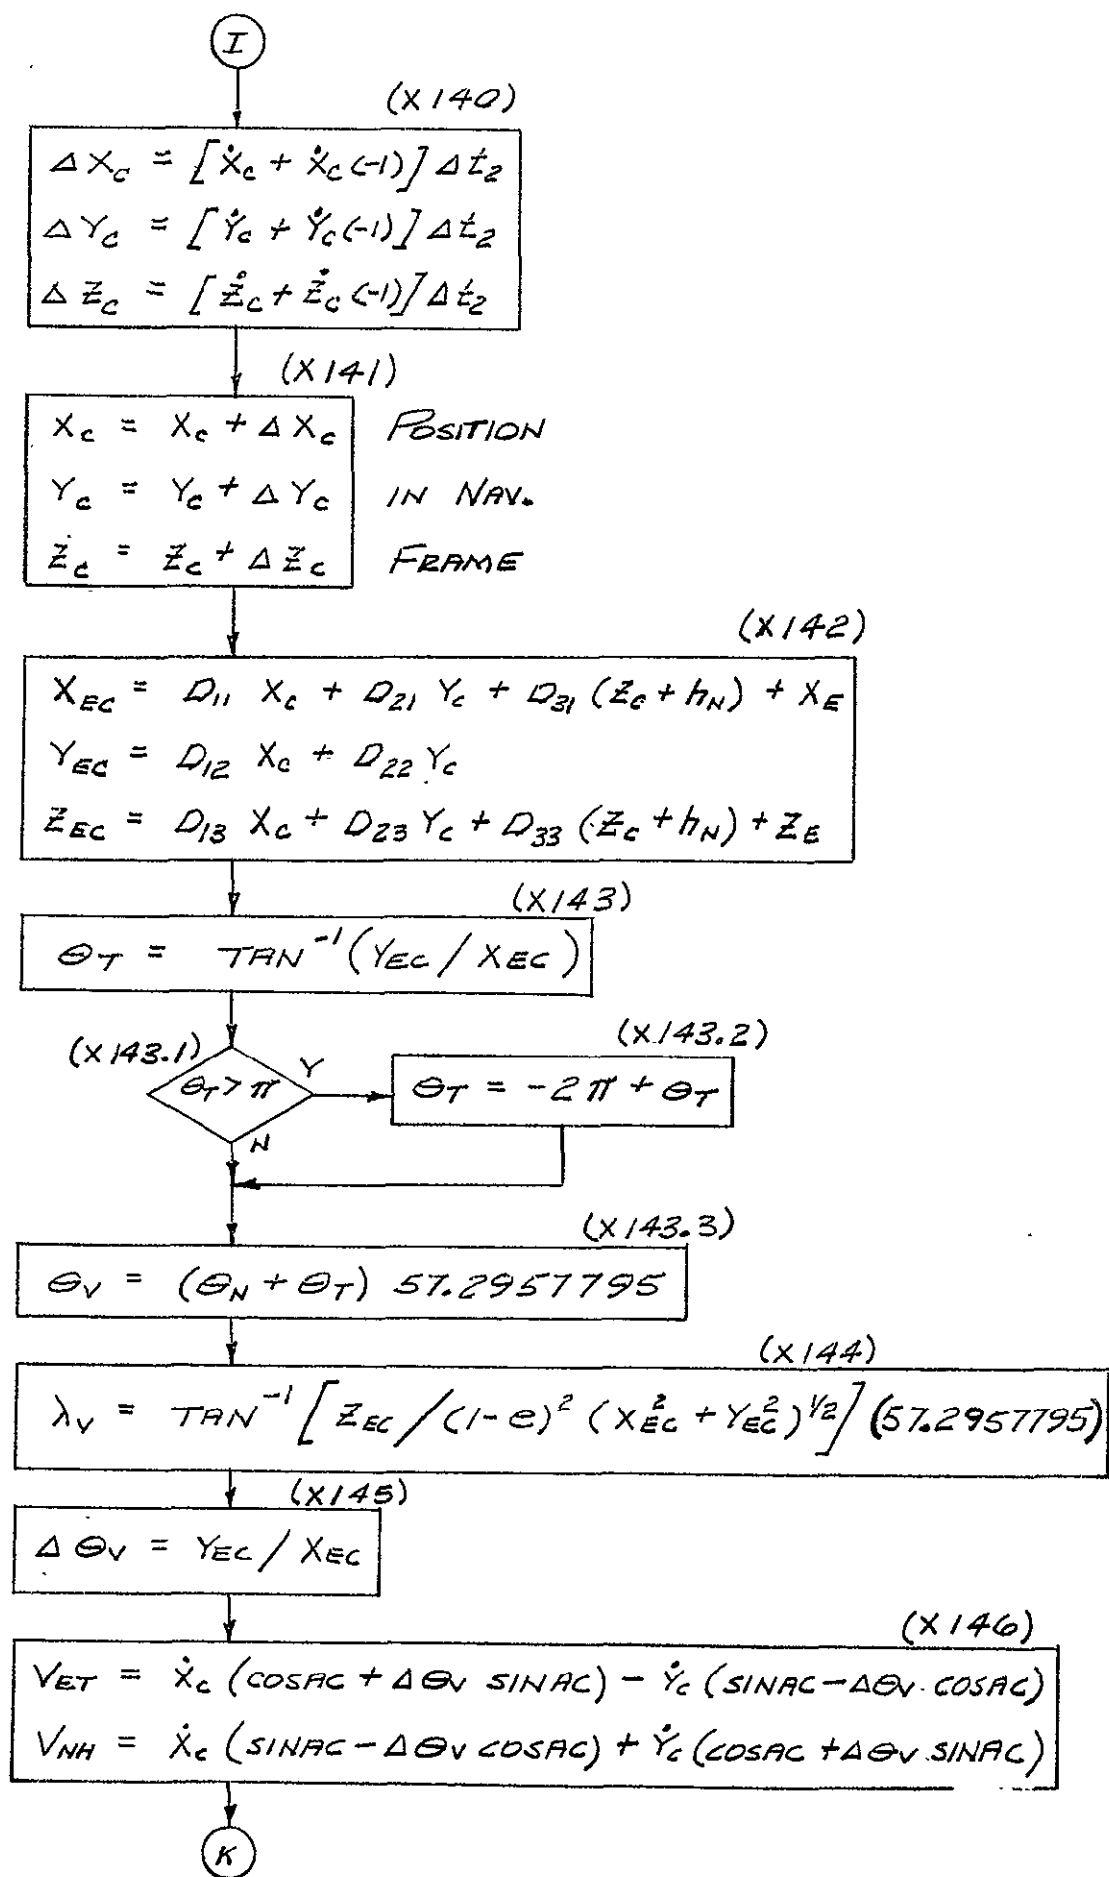 I
(X140)
ΔX_C = [Ẋ_C + Ẋ_C(-1)] Δt_2
ΔY_C = [Ẏ_C + Ẏ_C(-1)] Δt_2
ΔZ_C = [Ż_C + Ż_C(-1)] Δt_2
(X141)
X_C = X_C + ΔX_C POSITION
Y_C = Y_C + ΔY_C IN NAV.
Z_C = Z_C + ΔZ_C FRAME
(X142)
X_EC = D_11 X_C + D_21 Y_C + D_31 (Z_C + h_N) + X_E
Y_EC = D_12 X_C + D_22 Y_C
Z_EC = D_13 X_C + D_23 Y_C + D_33 (Z_C + h_N) + Z_E
(X143)
Θ_T = TAN^-1 (Y_EC / X_EC)
(X143.1)
Θ_T > π
Y
N
(X143.2)
Θ_T = -2π + Θ_T
(X143.3)
Θ_V = (Θ_N + Θ_T) 57.2957795
(X144)
λ_V = TAN^-1 [Z_EC / (1-e)^2 (X_EC^2 + Y_EC^2)^1/2] (57.2957795)
(X145)
ΔΘ_V = Y_EC / X_EC
(X146)
V_ET = Ẋ_C (COSAC + ΔΘ_V SINAC) - Ẏ_C (SINAC - ΔΘ_V COSAC)
V_NH = Ẋ_C (SINAC - ΔΘ_V COSAC) + Ẏ_C (COSAC + ΔΘ_V SINAC)
K